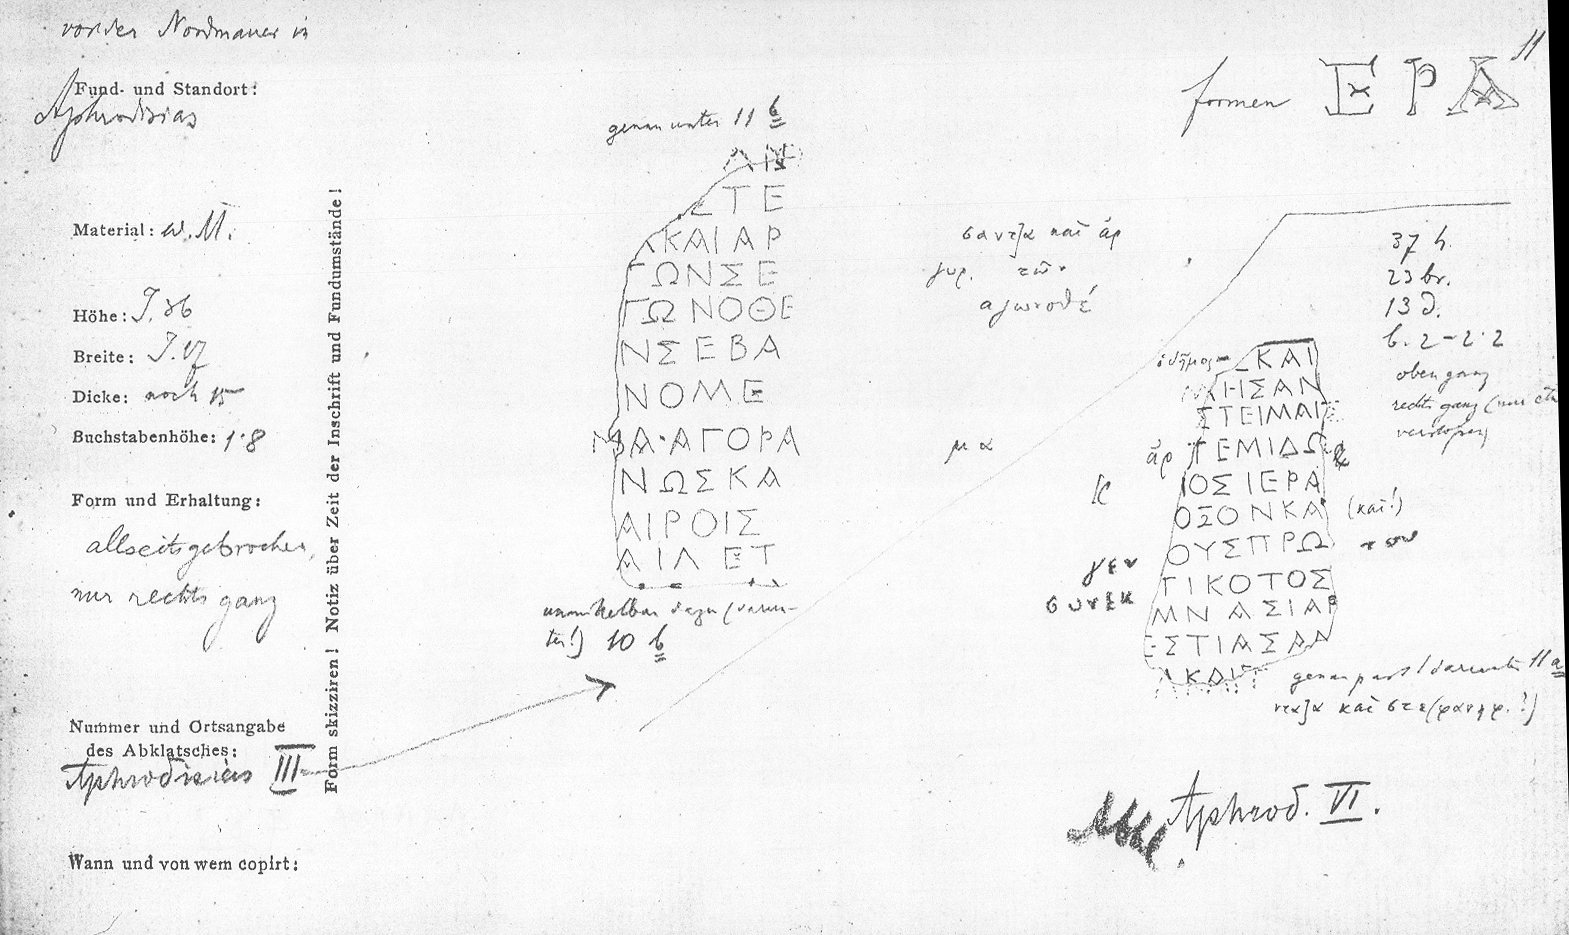 vor der Nordmauer in
Fund- und Standort:
Aphrodisias
Material: w. M.
Höhe:
Breite:
Dicke: noch 15
Buchstabenhöhe: 1·8
Form und Erhaltung:
allseits gebrochen,
nur rechts ganz
Nummer und Ortsangabe
des Abklatsches:
Aphrodisias III
Wann und von wem copirt:
Form skizziren! Notiz über Zeit der Inschrift und Fundumstände!
genau unter 11 b
ΑΝ
ΣΤΕ
ΚΑΙ ΑΡ
ΓΩΝΣΕ
ΓΩΝΟΘΕ
ΝΣΕΒΑ
ΝΟΜΕ
ΜΑ·ΑΓΟΡΑ
ΝΩΣΚΑ
ΑΙΡΟΙΣ
ΑΙΛΕΤ
10 b
καὶ ἀρ
γυρ. τῶν
ἀγωνοθέ
μα
formen Ε Ρ Α
11
37 h.
23 br.
13 d.
b. 2-2·2
oben ganz
rechts ganz
ὁ δῆμος ΚΑΙ
ΗΣΑΝ
ΣΤΕΙΜΑΙΣ
ἀρ ΤΕΜΙΔΩ
ΙΟΣ ΙΕΡΑ
ΟΣΟΝΚΑ (καὶ!)
γεν ΟΥΣΠΡΩ του
συνεκ ΓΙΚΟΤΟΣ
ΜΝΑΣΙΑΡ
ΕΣΤΙΑΣΑΝ
ΚΑΙΓ
genau passt darunter 11 a
καὶ στε(φανηφ.?)
Aphrod. VI.